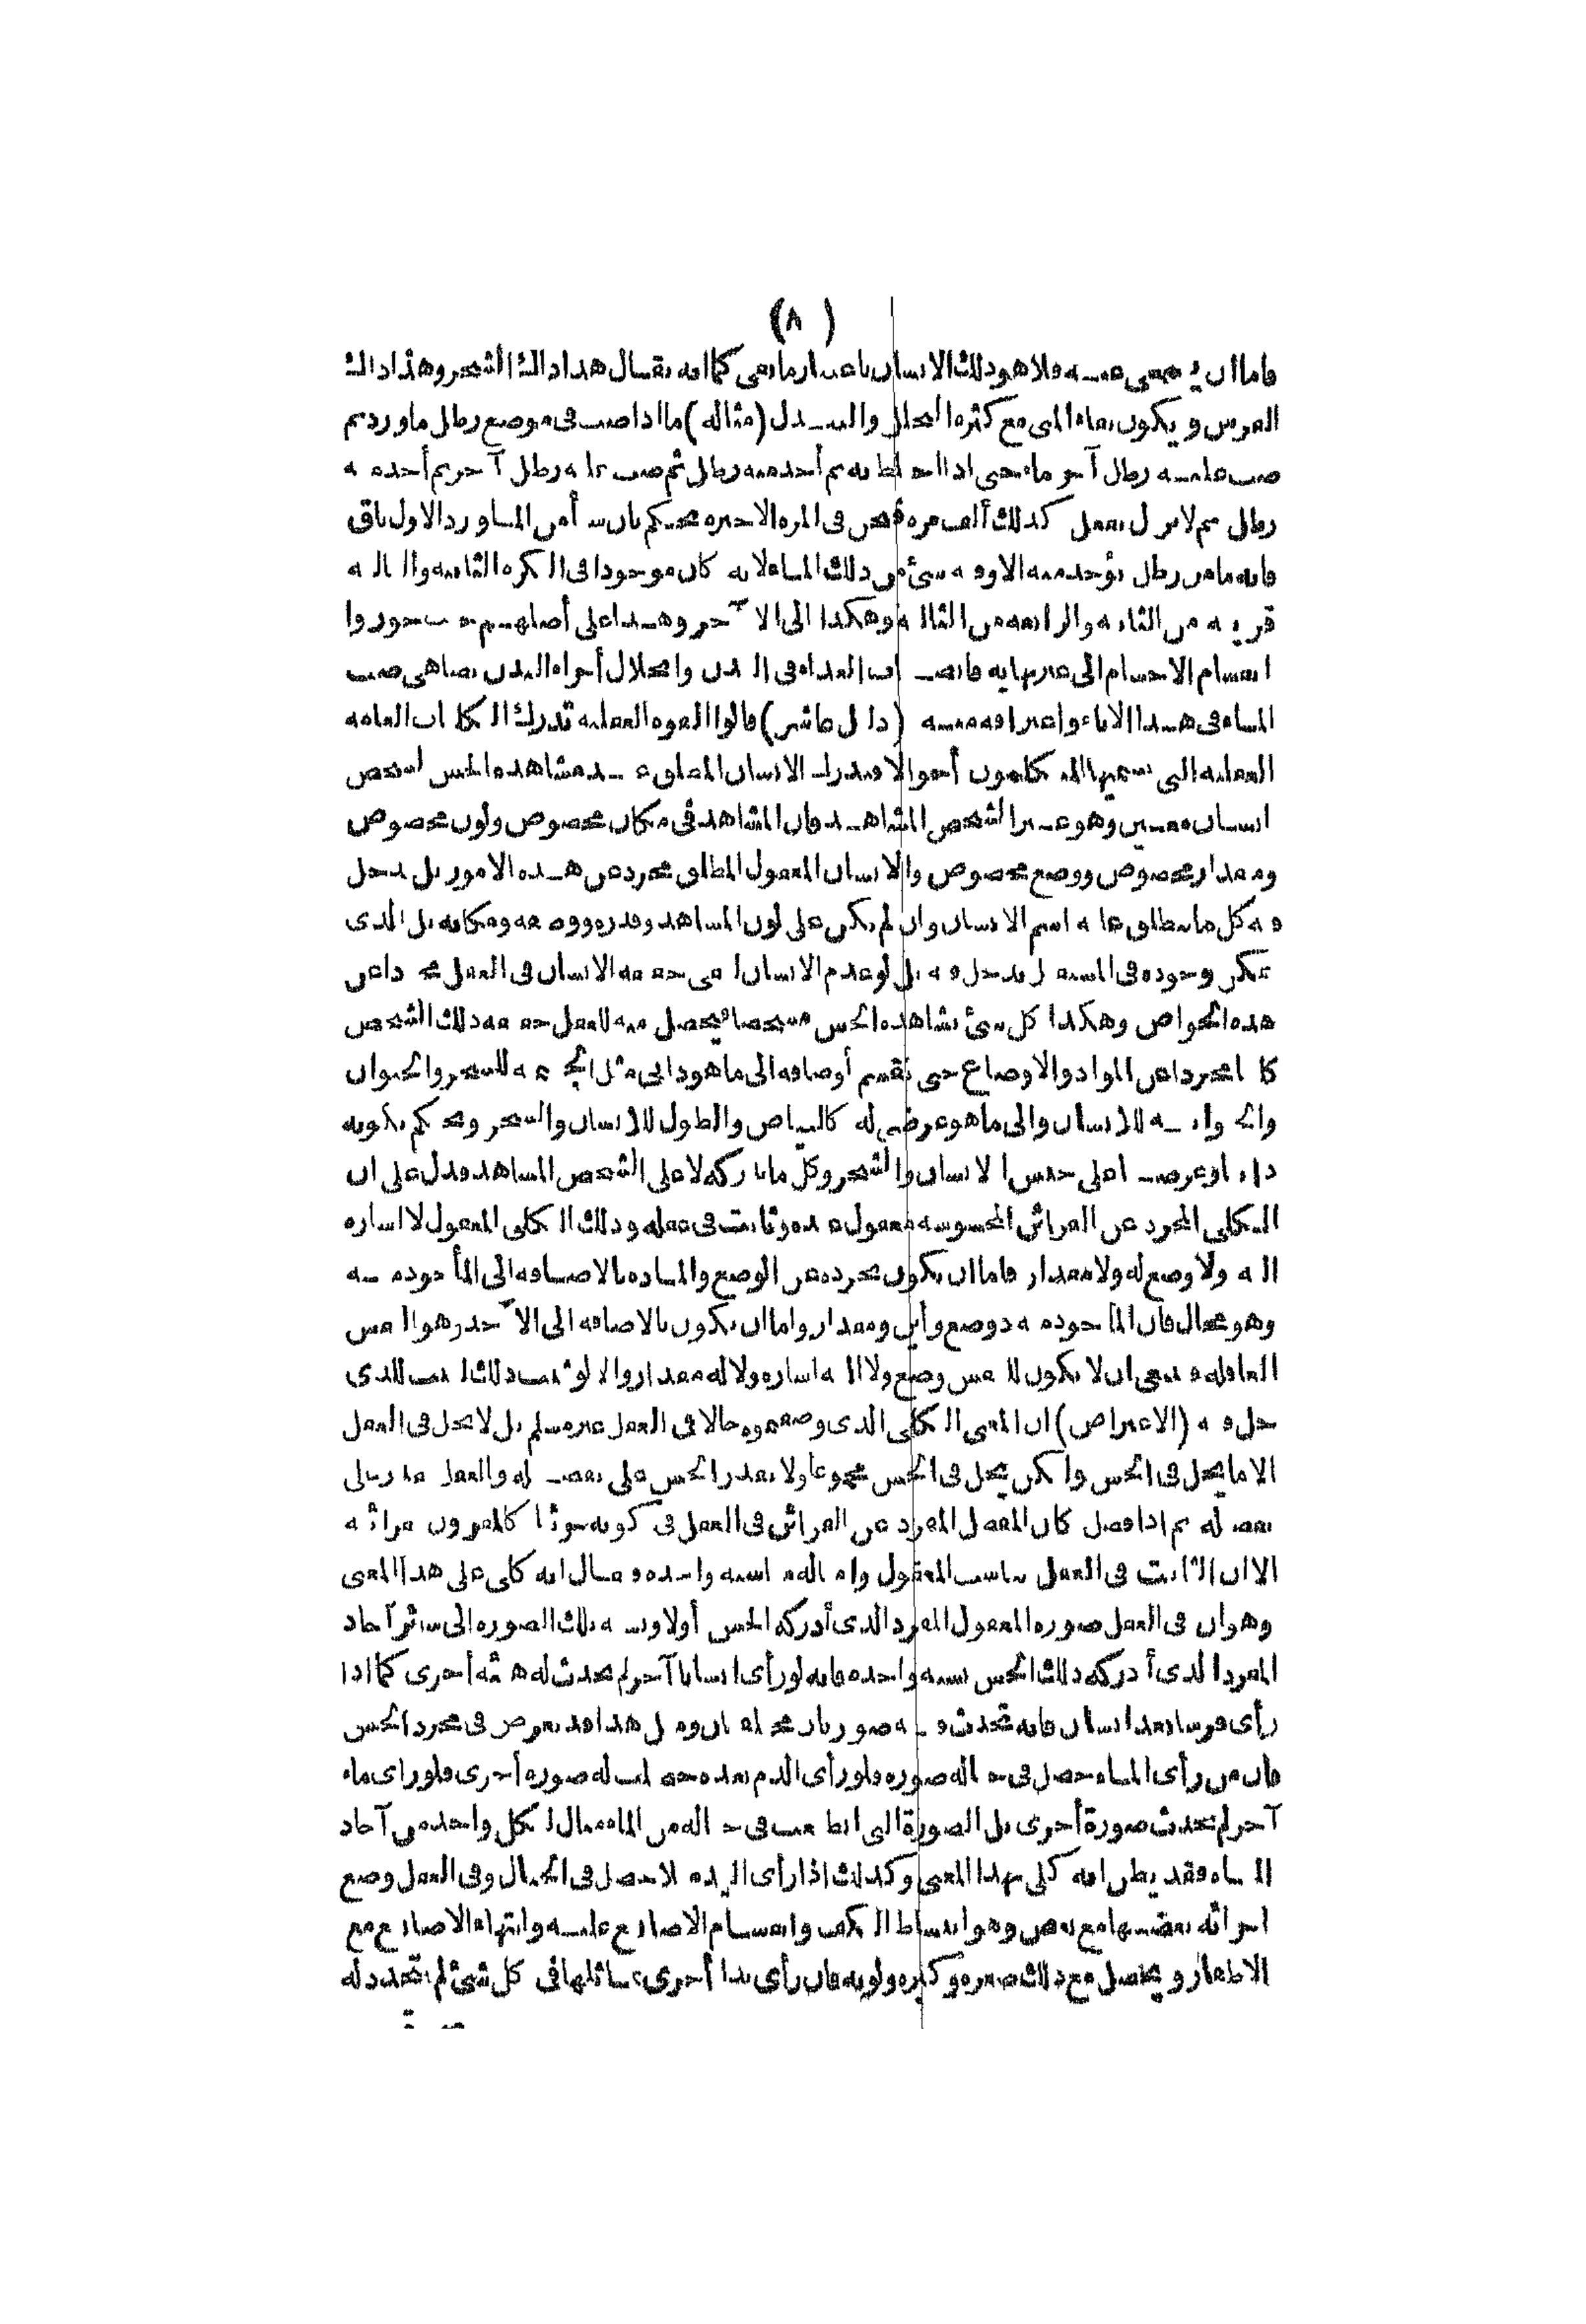 ( ٨ )
فاما ان يبقى شئ منه فلا هو ذلك الانسان باعتبار ما بقى كما انه يقال هذا ذاك الشجر وهذا ذاك
الفرس ويكون بقاء المنى مع كثرة التحلل والتبدل (مثاله) ما اذا صب فى موضع رطل ماورد ثم
صب عليه رطل آخر ماء حتى اذا اختلط به ثم أخذ منه رطل ثم صب عليه رطل آخر ثم أخذ منه
رطل ثم لا يزال يفعل كذلك ألف مرة فنحن فى المرة الاخيرة نحكم بان شيأ من الماورد الاول باق
فانه ما من رطل يؤخذ منه الا وفيه شئ من ذلك الماء لانه كان موجودا فى الكرة الثانية والثالثة
قريبة من الثانية والرابعة من الثالثة وهكذا الى الآخر وهذا على أصلهم ألزم حيث جوزوا
انقسام الاجسام الى غير نهاية فانصباب الغذاء فى البدن وانحلال أجزاء البدن يضاهى صب
الماء فى هذا الاناء واغترافه منه (دليل عاشر) قالوا القوة العقلية تدرك الكليات العامة
العقلية التى يسميها المتكلمون أحوالا فتدرك الانسان المطلق عند مشاهدة الحس لشخص
انسان معين وهو غير الشخص المشاهد فان المشاهد فى مكان مخصوص ولون مخصوص
ومقدار مخصوص ووضع مخصوص والانسان المعقول المطلق مجرد عن هذه الامور بل يدخل
فيه كل ما ينطلق عليه اسم الانسان وان لم يكن على لون المشاهد وقدره ووضعه ومكانه بل الذى
يمكن وجوده فى المستقبل يدخل فيه بل لو عدم الانسان يبقى حقيقة الانسان فى العقل مجردا عن
هذه الخواص وهكذا كل شئ شاهده الحس مشخصا فيحصل منه للعقل حقيقة ذلك الشخص
كليا مجردا عن المواد والاوضاع حتى تقسم أوصافه الى ما هو ذاتى مثل الجسمية للشجر والحيوان
والحيوانية للانسان والى ما هو عرضى له كالبياض والطول للانسان والشجر ويحكم بكونه
ذاتيا وعرضيا على جنس الانسان والشجر وكل ما يدركه لا على الشخص المشاهد فدل على ان
الكلى المجرد عن القرائن المحسوسة معقول عنده وثابت فى عقله وذلك الكلى المعقول لا اشارة
اليه ولا وضع له ولا مقدار فاما ان يكون تجرده عن الوضع والمادة بالاضافة الى المأخوذ منه
وهو محال فان المأخوذ منه ذو وضع وأين ومقدار واما ان يكون بالاضافة الى الآخذ وهو النفس
العاقلة فينبغى ان لا يكون للنفس وضع ولا اليه اشارة ولا له مقدار والا لو ثبت ذلك لثبت للذى
حل فيه (الاعتراض) ان المعنى الكلى الذى وضعتموه حالا فى العقل غير مسلم بل لا يحل فى العقل
الا ما يحل فى الحس ولكن يحل فى الحس مجموعا ولا يقدر الحس على تفصيله والعقل يقدر على
تفصيله ثم اذا فصل كان المفصل المفرد عن القرائن فى العقل فى كونه جزئيا كالمقرون بقرائنه
الا ان الثابت فى العقل يناسب المعقول وامثاله مناسبة واحدة فيقال انه كلى على هذا المعنى
وهو ان فى العقل صورة المعقول المفرد الذى أدركه الحس أولا ونسبة تلك الصورة الى سائر آحاد
المفرد الذى أدركه ذلك الحس نسبة واحدة فانه لو رأى انسانا آخر لم يحدث له هيئة أخرى كما اذا
رأى فرسا بعد انسان فانه يحدث فيه صورتان مختلفتان ومثل هذا قد يعرض فى مجرد الحس
فان من رأى الماء حصل فى خياله صورة فلو رأى الدم بعده حصلت له صورة أخرى فلو رأى ماء
آخر لم تحدث صورة أخرى بل الصورة التى انطبعت فى خياله من الماء مثال لكل واحد من آحاد
المياه فقد يظن انه كلى بهذا المعنى وكذلك اذا رأى اليد مثلا حصل فى الخيال وفى العقل وضع
اجزائه بعضها مع بعض وهو انبساط الكف وانقسام الاصابع عليه وانتهاء الاصابع مع
الاظفار ويحصل مع ذلك صغره وكبره ولونه فان رأى يدا أخرى تماثلها فى كل شئ لم يتجدد له